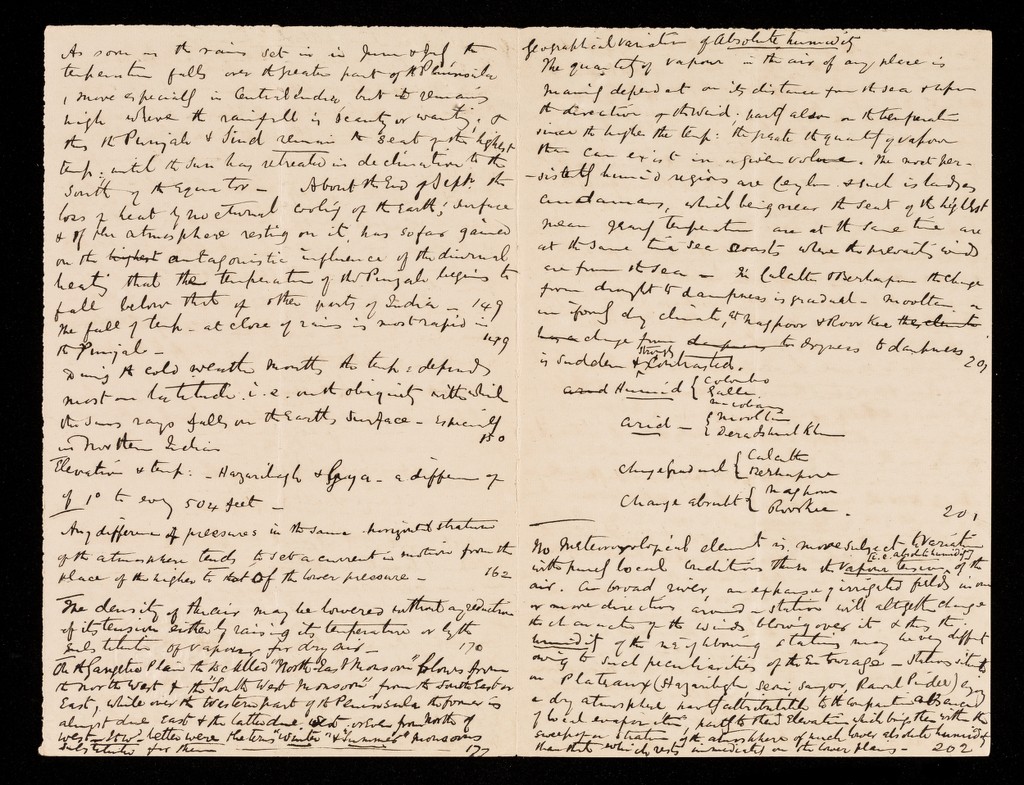 As soon as the rains set in in June & July the
temperature falls over the greater part of the Peninsula
, more especially in Central India, but it remains
high where the rainfall is scanty or wanting, &
thus the Punjab & Sind remain the seat of the highest
temp: until the Sun has retreated in declination to the
South of the Equator — About the End of Sept: the
loss of heat by nocturnal cooling of the Earth's surface
& of the atmosphere resting on it, has so far gained
on the highest antagonistic influence of the diurnal
heating that the temperature of the Punjab begins to
fall below that of other parts of India — 149
The fall of temp — at close of rains is most rapid in
the Punjab — 149
During the cold weather months the temp: depends
most on latitude i.e. on the obliquity with which
the Suns rays falls on the Earths surface — especially
in Northern India 150
Elevation & temp: — Hazaribagh & Gya — a difference of
of 1° to every 504 feet —
Any difference of pressures in the same horizontal stratum
of the atmosphere tends to set a current in motion from the
place of the higher to that of the lower pressure — 162
The density of the air may be lowered without any reduction
of its tension either by raising its temperature or by the
substitution of vapour for dry air — 170
On the Gangetic Plain the so called "North East Monsoon" blows from
the North West & the "South West Monsoon" from the South East or
East, while over the Western part of the Peninsula the former is
almost due East & the latter due West or even from North of
West — How better were the terms "Winter" & "Summer" Monsoons
substituted for them 177
Geographical variation of Absolute humidity
The quantity of vapour in the air of any place is
mainly dependent on its distance from the sea & upon
the direction of the wind: partly also on the temperature
since the higher the temp: the greater the quantity of vapour
that can exist in a given volume. The most per-
-sistently humid regions are Ceylon & such islands as
Andamans, which being near the seat of the highest
mean temperature are at the same time are
at the same time sea coasts where the prevailing winds
are from the sea — In Calcutta & Berhampore the change
from drought to dampness is gradual — Mooltan
dry climate, at Nagpoor & Roorkee the climate
has a change from dampness to dryness to dampness
is sudden & strongly contrasted. 201
and Humid { Colombo
Galle
Nancowry
arid — { Mooltan
Dera Ishmael Khan
change gradual { Calcutta
Berhampore
Change abrubt { Nagpour
Roorkee . 201
No meteorological element is more subject to variation
with purely local conditions than the vapour tension (i.e. absolute humidity) of the
air. A broad river, an expanse of irrigated fields in one
or more directions around a station will altogether change
the character of the winds blowing over it & thus the
humidity of the neighbouring stations may be very different
owing to such peculiarities of the Entourage — Stations situated
on Plateaux (Hazaribagh, Seoni, Saugor, Rawul Pindee) enjoy
a dry atmosphere partly attributable to the comparative absence
of local evaporation partly to their Elevation which brings them within the
sweep of a stratum of the atmosphere of much lower absolute humidity
than that which rests immediately on the lower plains — 202